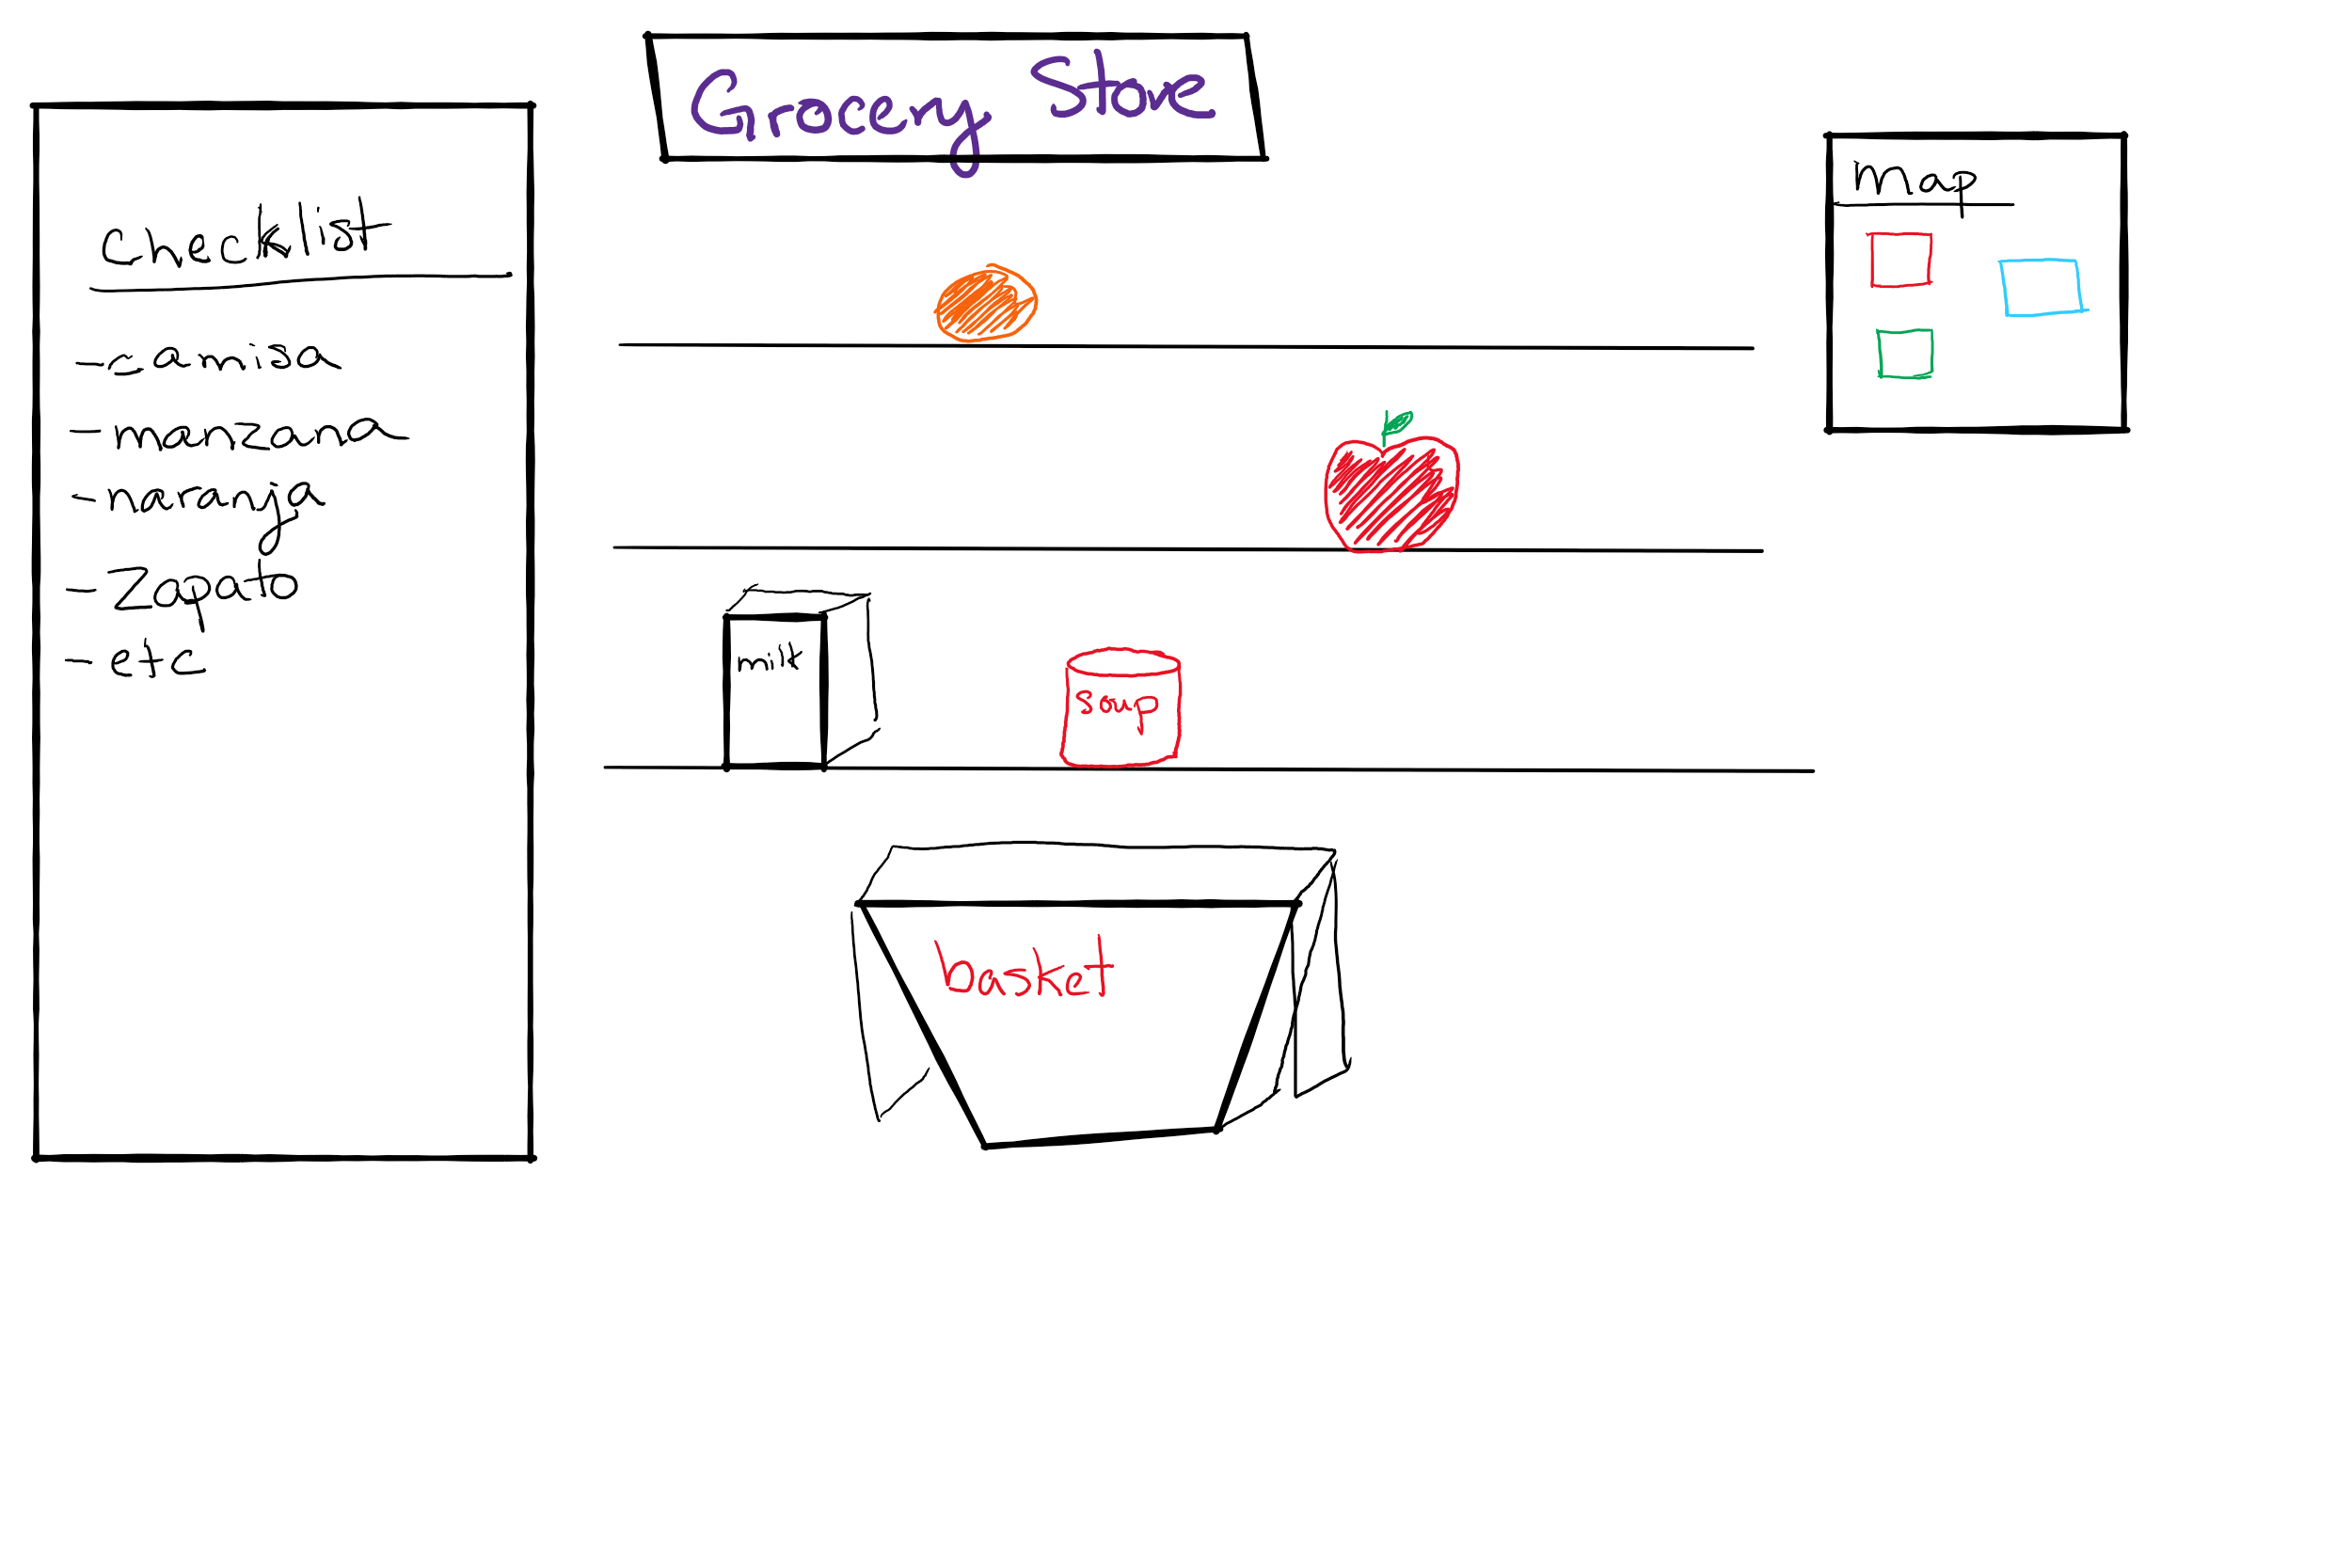 Grocery Store
Checklist
- camisa
- manzana
- naranja
- Zapato
- etc
Map
milk
soup
basket